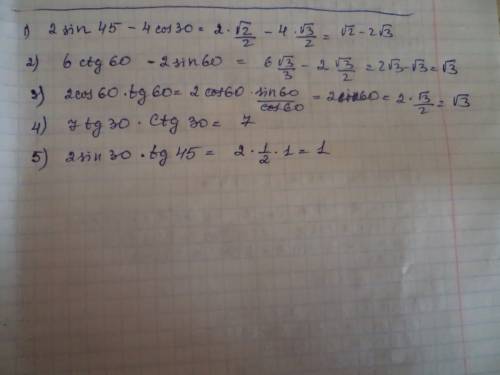 1) 2 sin 45 - 4 cos 30 = 2 · √2/2 - 4 · √3/2 = √2 - 2√3
2) 6 ctg 60 - 2 sin 60 = 6 √3/3 - 2 √3/2 = 2√3 - √3 = √3
3) 2cos 60 · tg 60 = 2 cos 60 · sin 60/cos 60 = 2 sin 60 = 2 · √3/2 = √3
4) 7 tg 30 · ctg 30 = 7
5) 2 sin 30 · tg 45 = 2 · 1/2 · 1 = 1